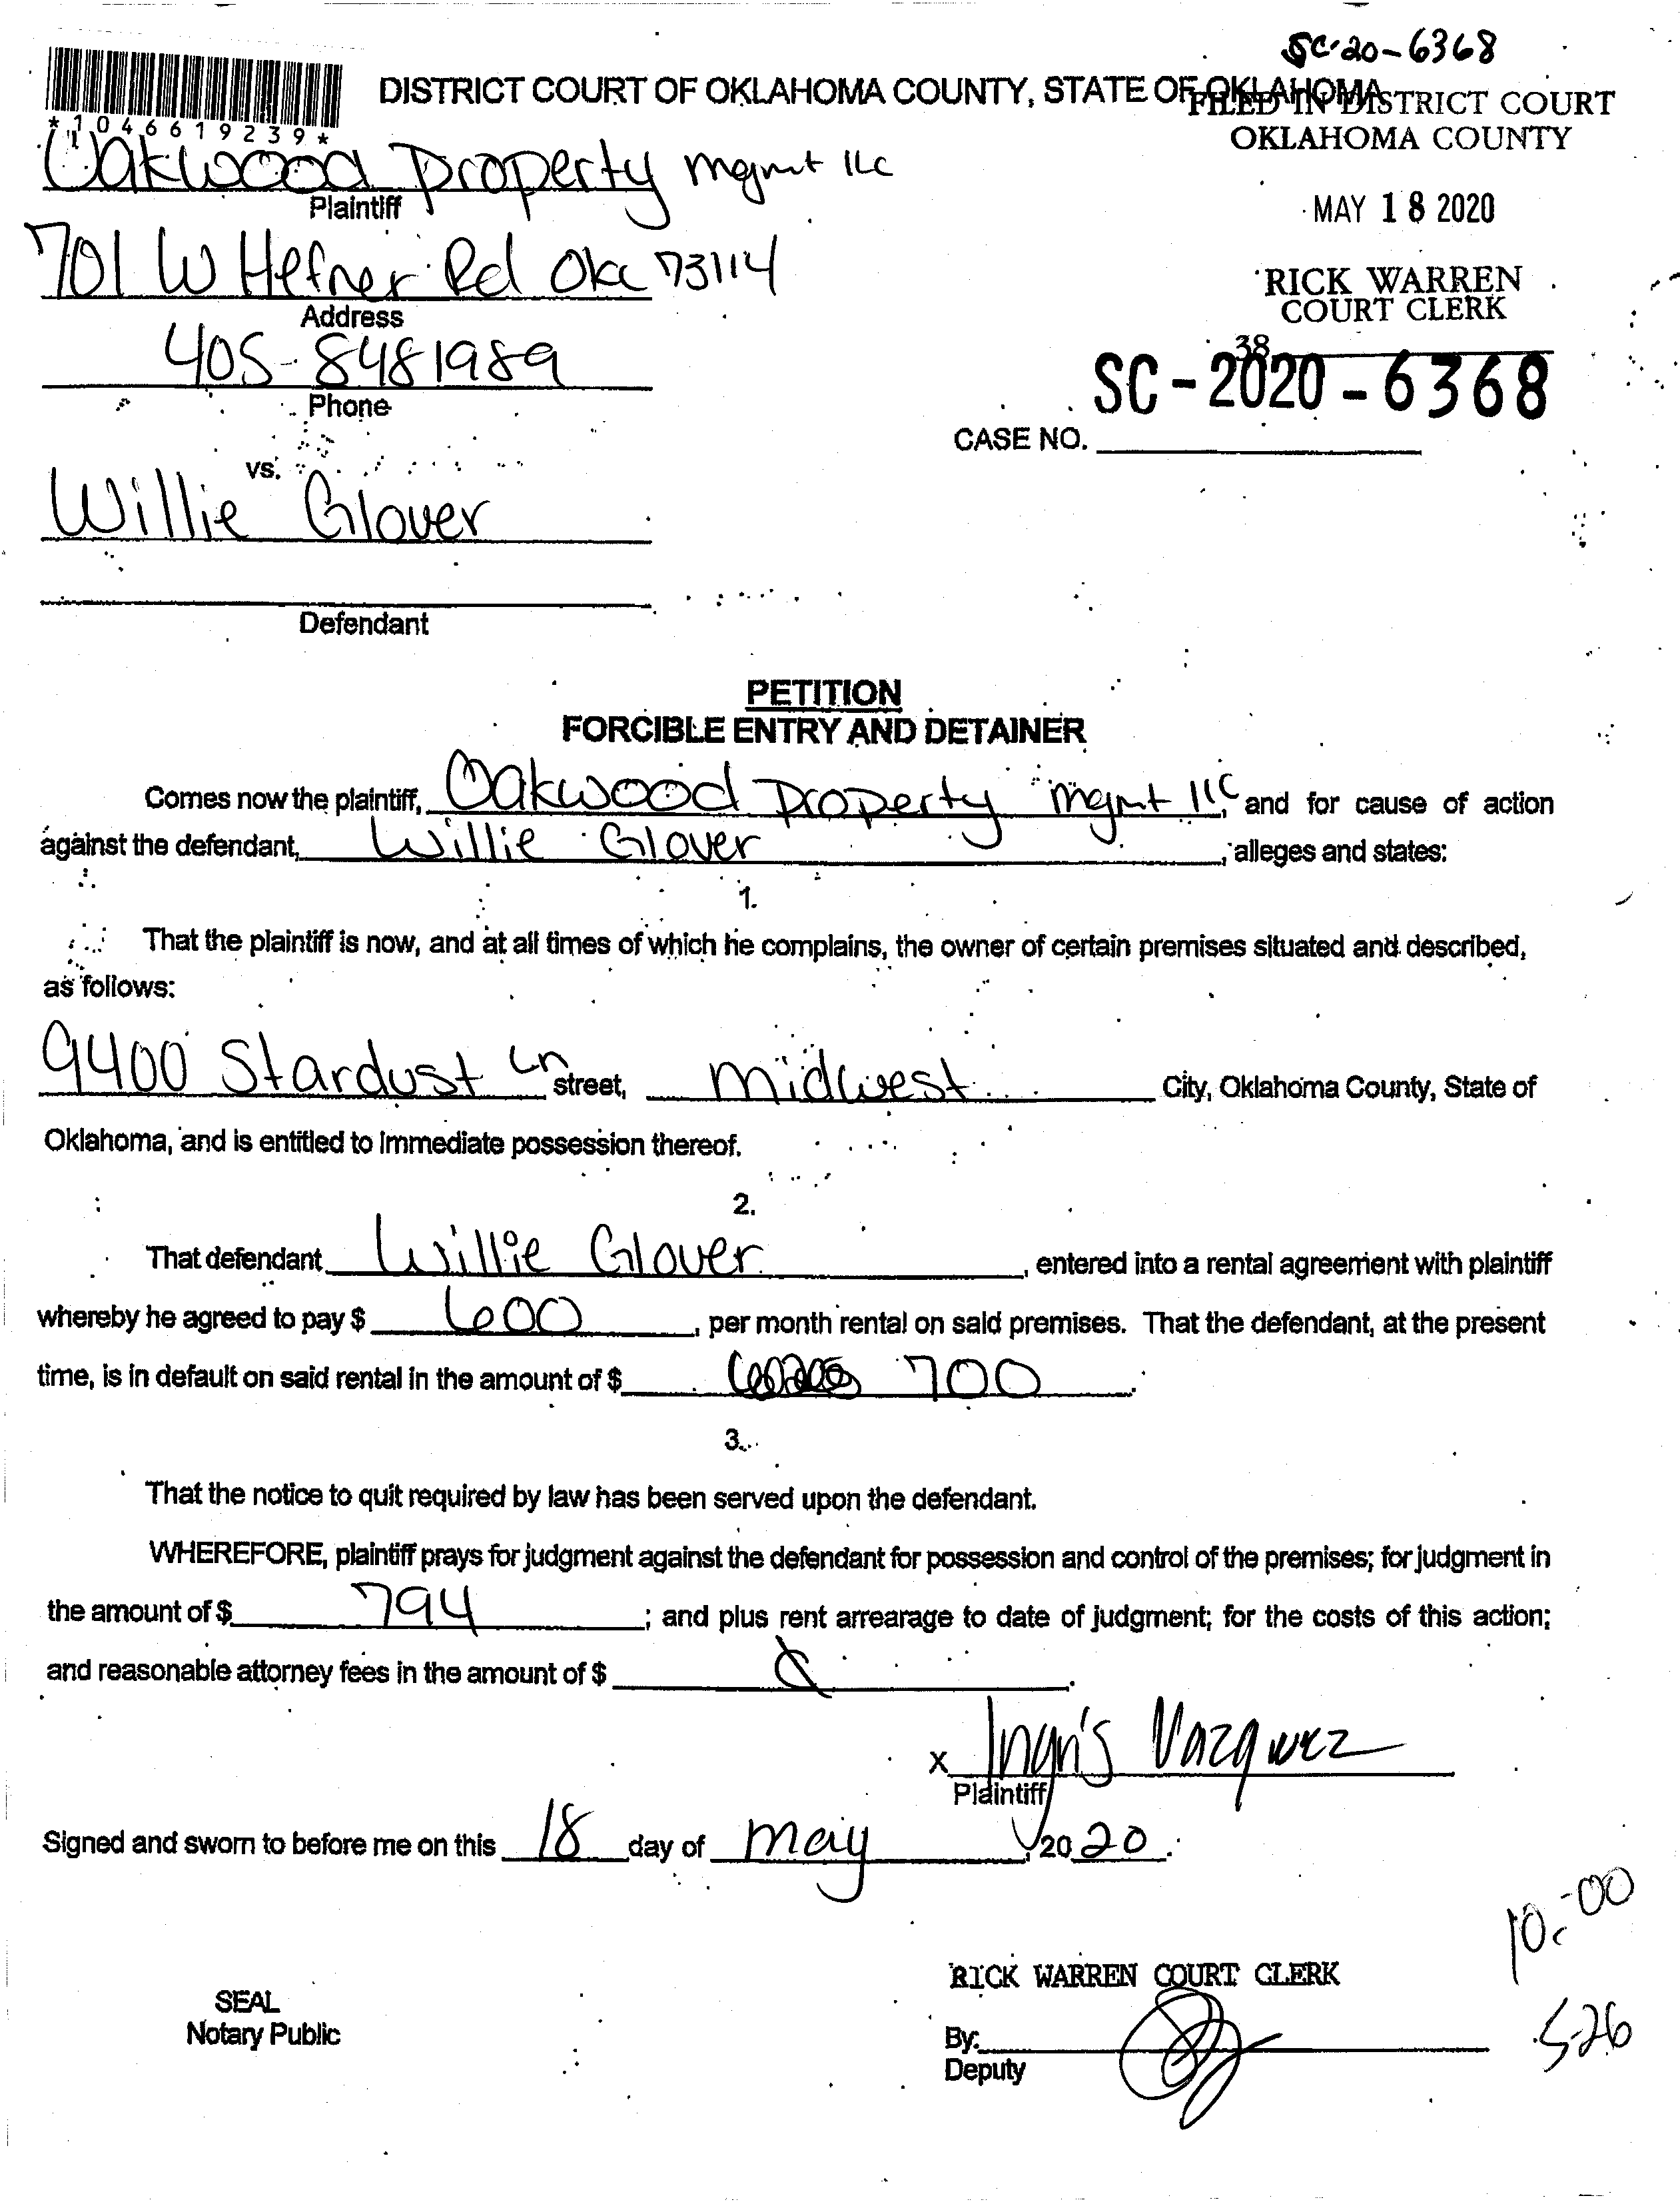 SC-20-6368
DISTRICT COURT OF OKLAHOMA COUNTY, STATE OF OKLAHOMA
FILED IN DISTRICT COURT
OKLAHOMA COUNTY
*1046619239*
Oakwood Property Mgmt llc
Plaintiff
MAY 18 2020
701 W Hefner Rd Okc 73114
Address
RICK WARREN
COURT CLERK
405-8481989
Phone
38
SC-2020-6368
CASE NO.
vs.
Willie Glover
Defendant
PETITION
FORCIBLE ENTRY AND DETAINER
Comes now the plaintiff, Oakwood Property Mgmt llc, and for cause of action
against the defendant, Willie Glover, alleges and states:
1.
That the plaintiff is now, and at all times of which he complains, the owner of certain premises situated and described,
as follows:
9400 Stardust Ln street, Midwest City, Oklahoma County, State of
Oklahoma, and is entitled to immediate possession thereof.
2.
That defendant Willie Glover, entered into a rental agreement with plaintiff
whereby he agreed to pay $ 600, per month rental on said premises. That the defendant, at the present
time, is in default on said rental in the amount of $ 700.
3.
That the notice to quit required by law has been served upon the defendant.
WHEREFORE, plaintiff prays for judgment against the defendant for possession and control of the premises; for judgment in
the amount of $ 794; and plus rent arrearage to date of judgment; for the costs of this action;
and reasonable attorney fees in the amount of $
x Ingris Vazquez
Plaintiff
Signed and sworn to before me on this 18 day of May, 2020.
10:00
RICK WARREN COURT CLERK
SEAL
Notary Public
By:
Deputy
5-26